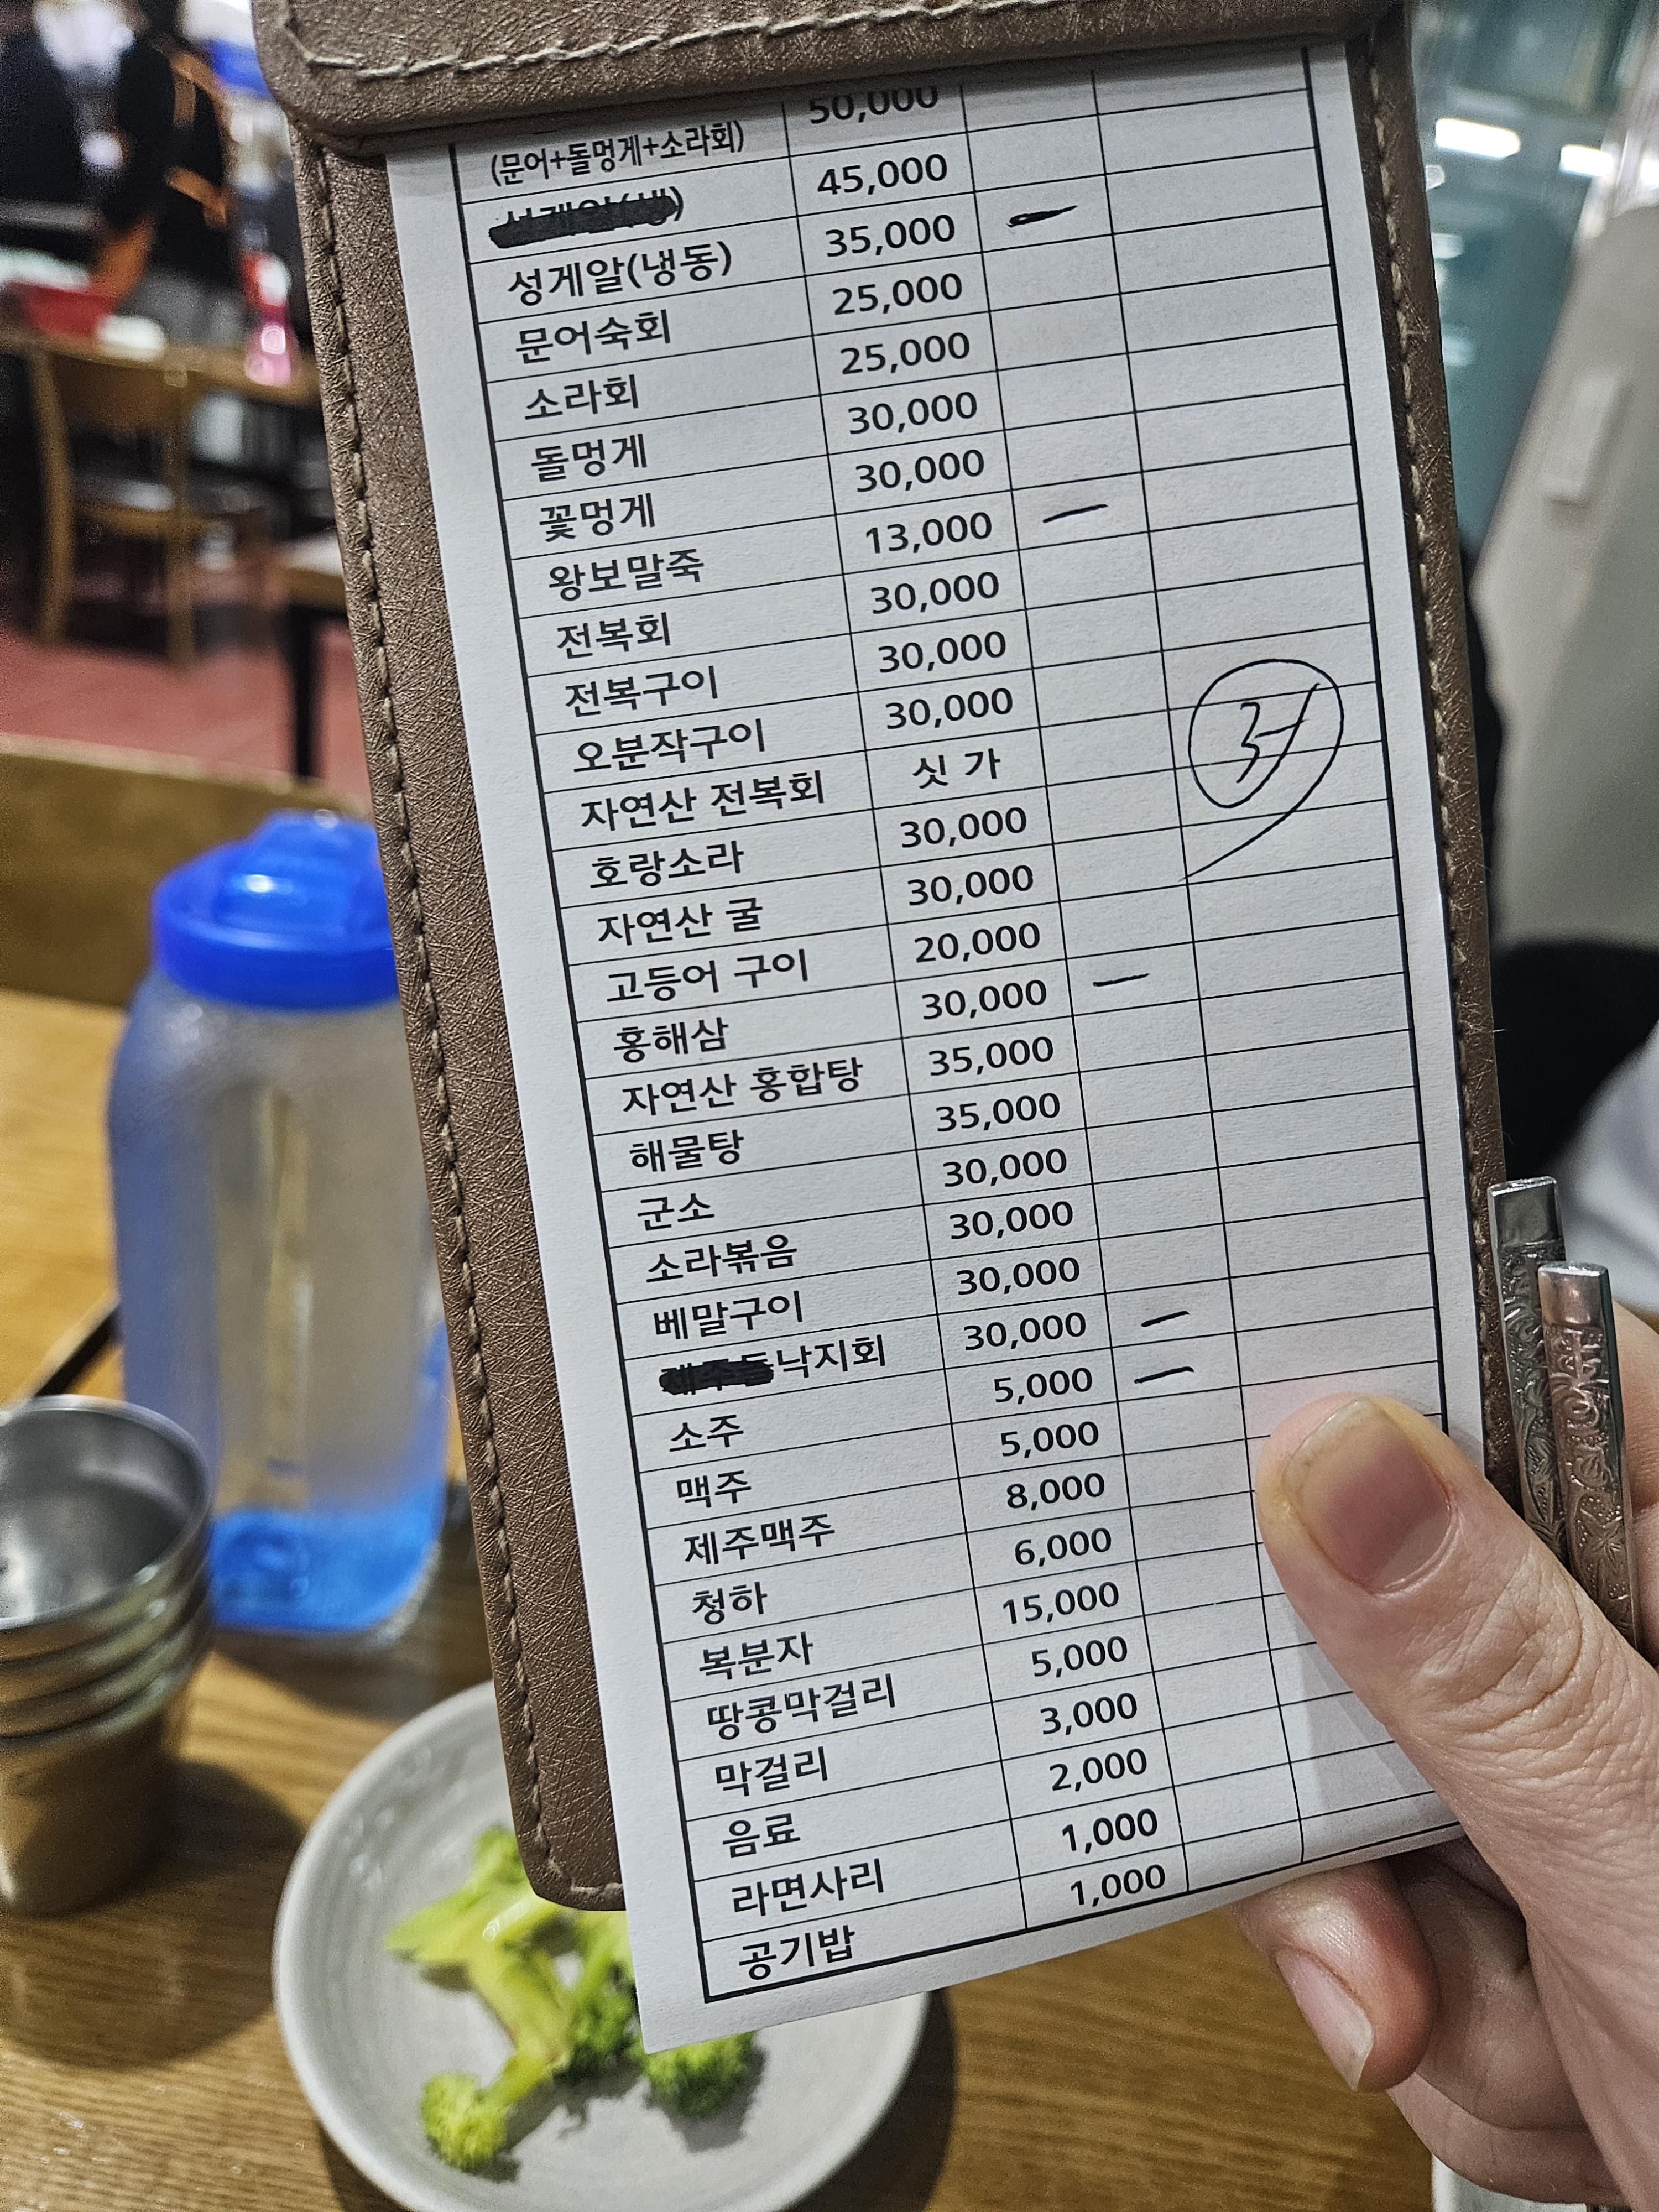 (문어+돌멍게+소라회) 50,000
45,000
성게알(냉동) 35,000
문어숙회 25,000
소라회 25,000
돌멍게 30,000
꽃멍게 30,000
왕보말죽 13,000
전복회 30,000
전복구이 30,000
오분작구이 30,000
자연산 전복회 싯 가
호랑소라 30,000
자연산 굴 30,000
고등어 구이 20,000
홍해삼 30,000
자연산 홍합탕 35,000
해물탕 35,000
군소 30,000
소라볶음 30,000
베말구이 30,000
낙지회 30,000
소주 5,000
맥주 5,000
제주맥주 8,000
청하 6,000
복분자 15,000
땅콩막걸리 5,000
막걸리 3,000
음료 2,000
라면사리 1,000
공기밥 1,000